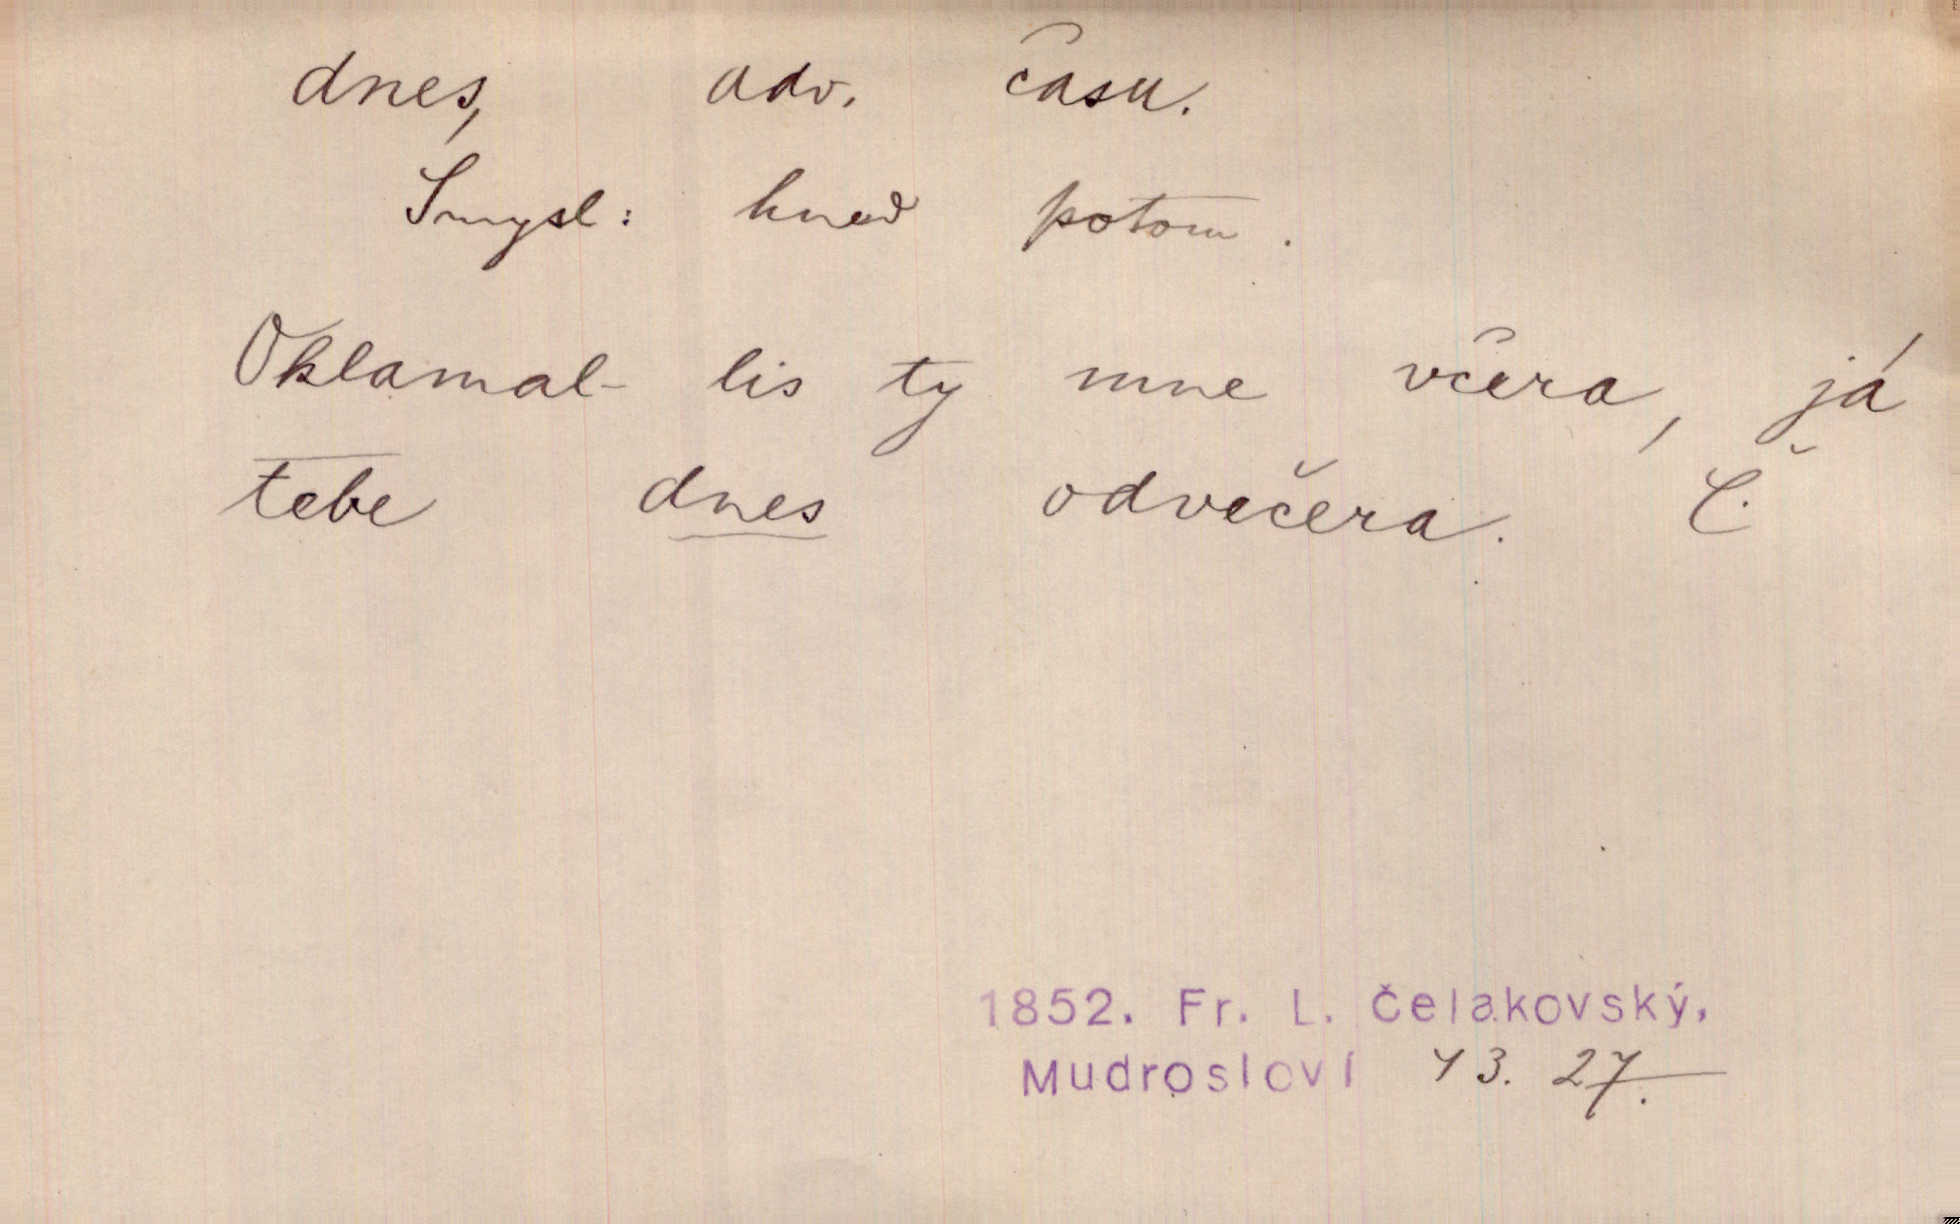 dnes, adv. času.
Smysl: hned potom.
Oklamal-lis ty mne včera, já
tebe dnes odvečera. Č.
1852. Fr. L. Čelakovský,
Mudrosloví 43. 27.